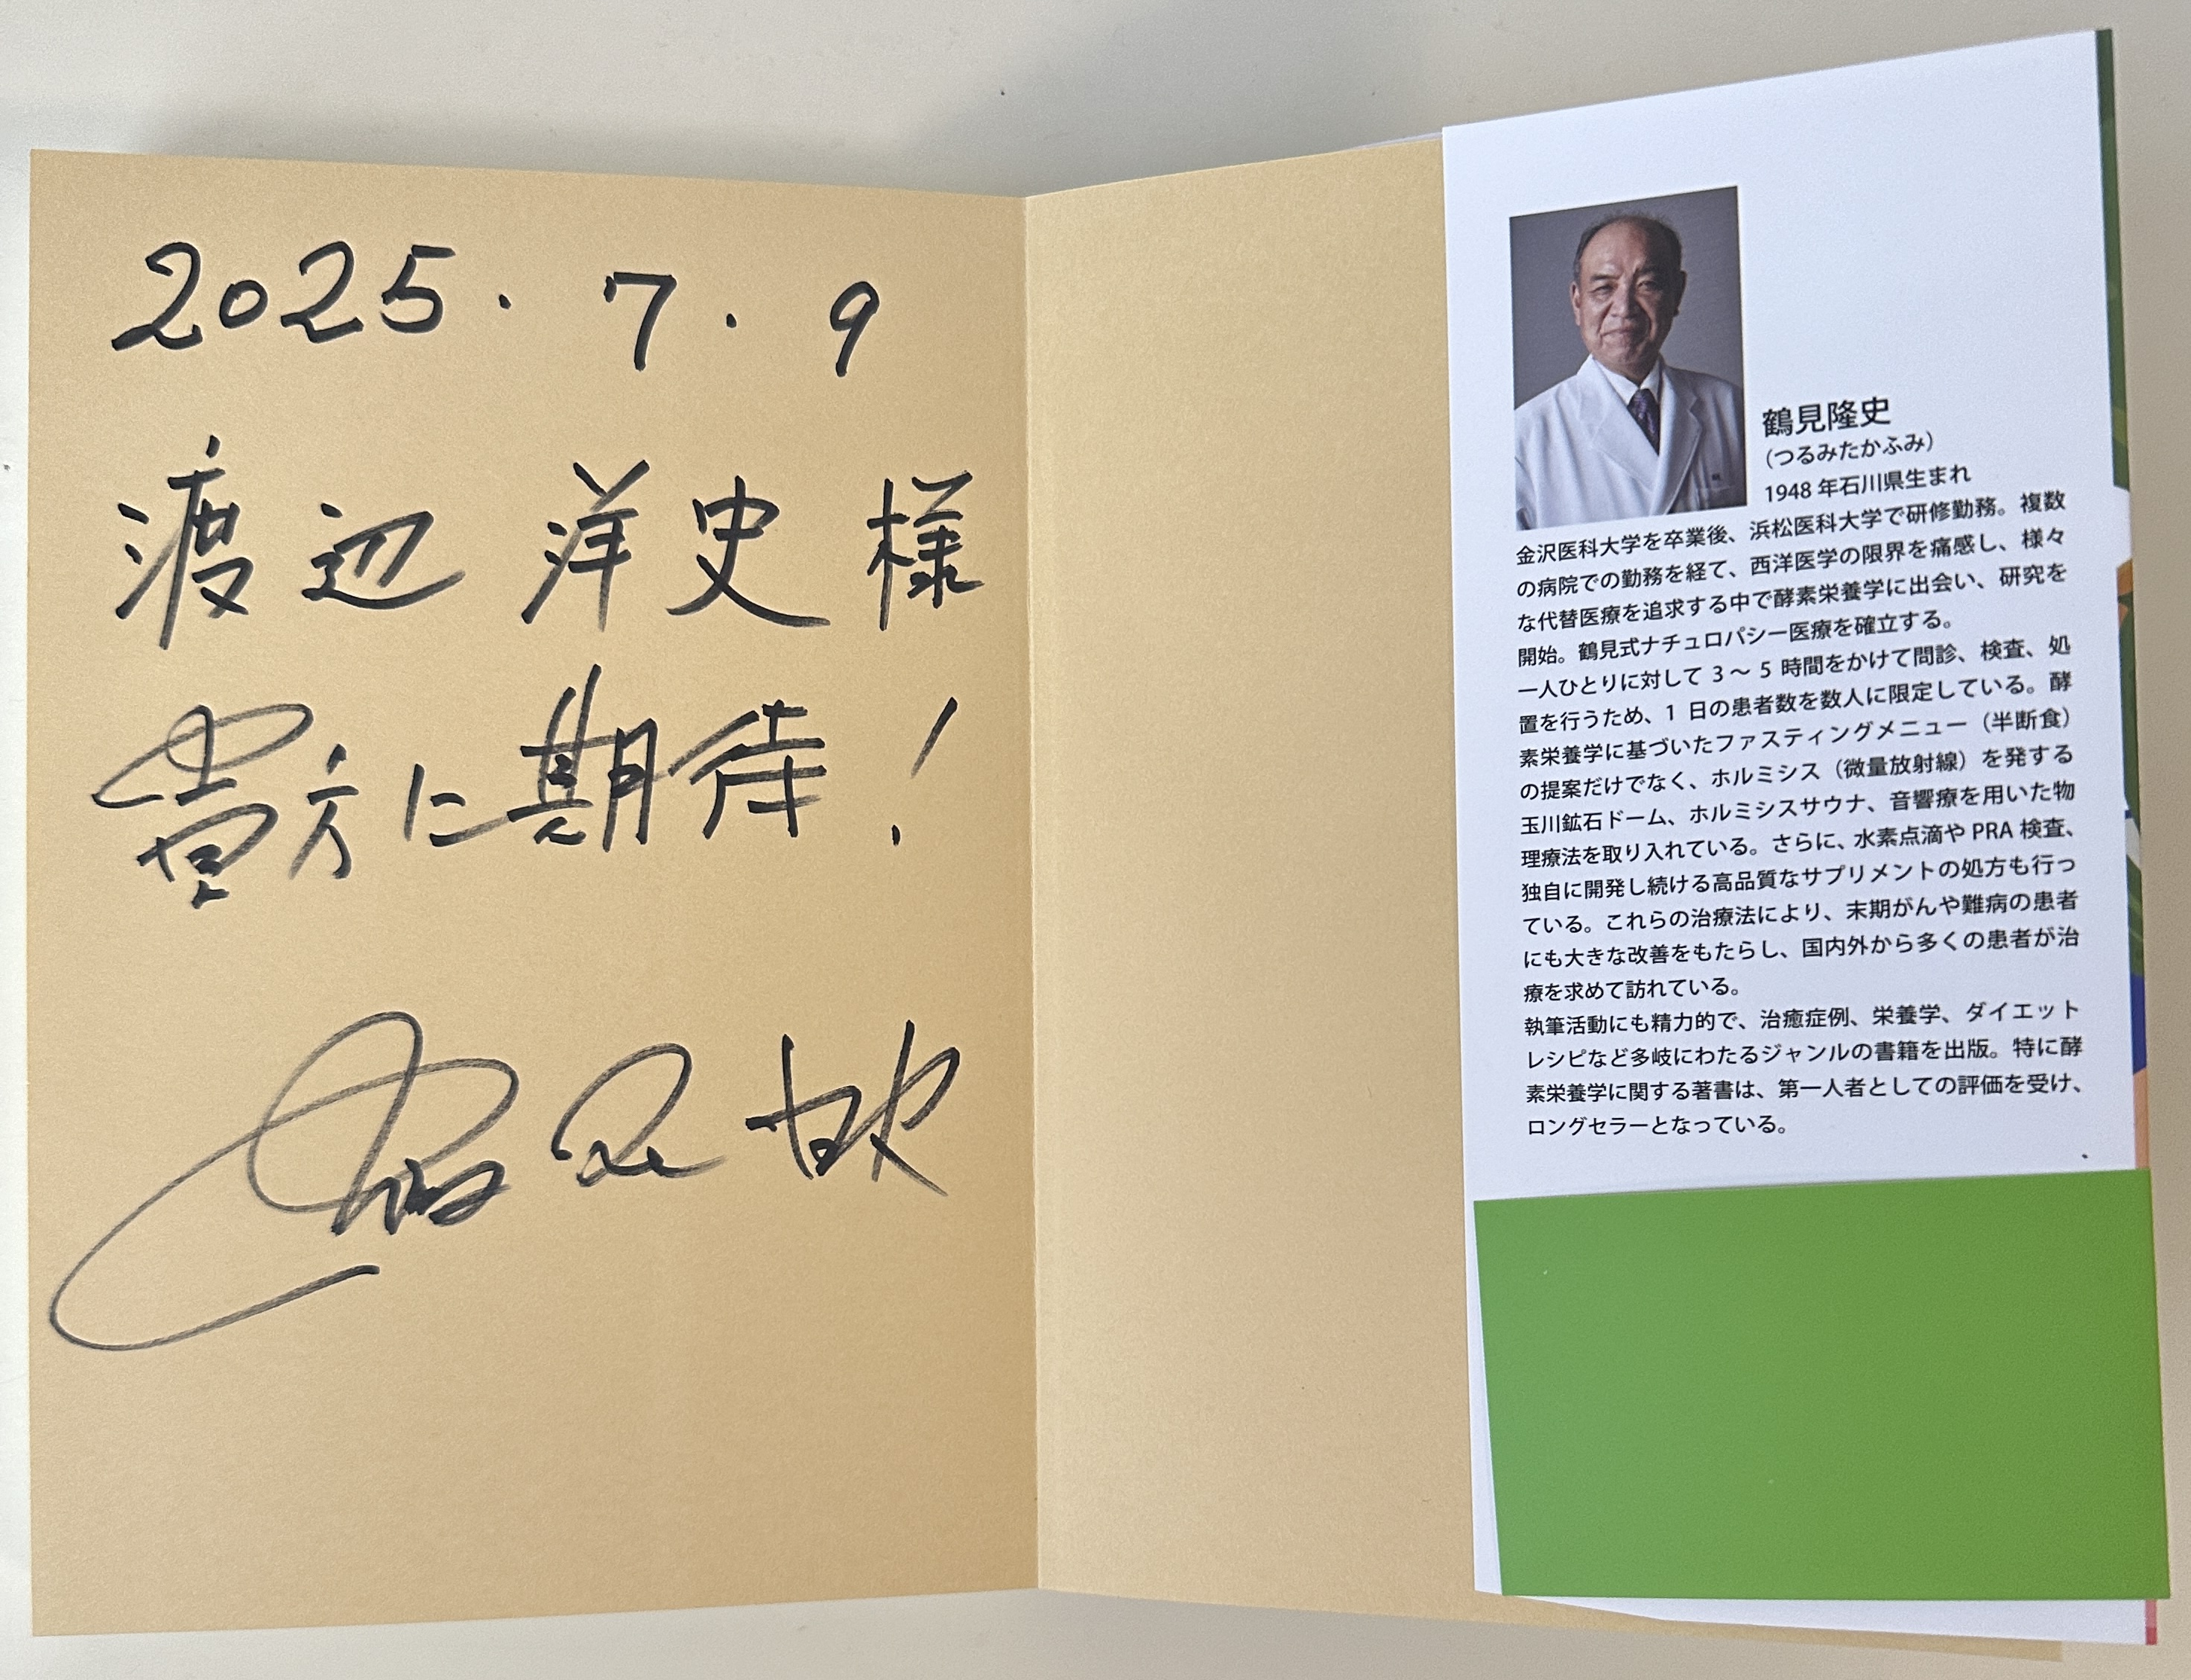 2025．7．9
渡辺 洋史 様
貴方に期待！
鶴見隆史
(つるみたかふみ)
1948 年石川県生まれ
金沢医科大学を卒業後、浜松医科大学で研修勤務。複数
の病院での勤務を経て、西洋医学の限界を痛感し、様々
な代替医療を追求する中で酵素栄養学に出会い、研究を
開始。鶴見式ナチュロパシー医療を確立する。
一人ひとりに対して 3～5 時間をかけて問診、検査、処
置を行うため、1 日の患者数を数人に限定している。酵
素栄養学に基づいたファスティングメニュー（半断食）
の提案だけでなく、ホルミシス（微量放射線）を発する
玉川鉱石ドーム、ホルミシスサウナ、音響療を用いた物
理療法を取り入れている。さらに、水素点滴や PRA 検査、
独自に開発し続ける高品質なサプリメントの処方も行っ
ている。これらの治療法により、末期がんや難病の患者
にも大きな改善をもたらし、国内外から多くの患者が治
療を求めて訪れている。
執筆活動にも精力的で、治癒症例、栄養学、ダイエット
レシピなど多岐にわたるジャンルの書籍を出版。特に酵
素栄養学に関する著書は、第一人者としての評価を受け、
ロングセラーとなっている。